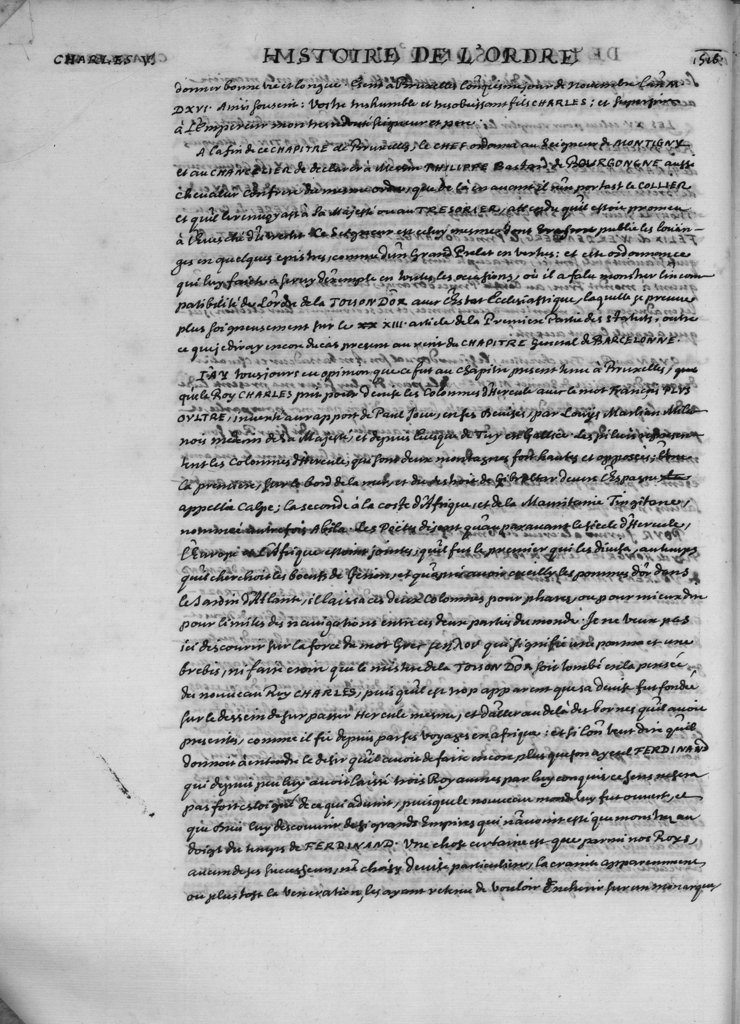 CHARLES V.
HISTOIRE DE L'ORDRE
1516.
donner bonne vie et longue. Escrit à Bruxelles jour de Novembre L'an M
DXVI. Ainsi souscrit: Vostre treshumble et tresobeissant fils CHARLES; et
à L'Empereur mon tresredouté Seigneur et pere.
A la fin de ce CHAPITRE de Bruxelles, le CHEF ordonna au Seigneur de MONTIGNY
et au CHANCELIER de declarer à Messire PHILIPPE Bastard de BOURGONGNE aussi
chevalier Confrere du mesme ordre, que de là en avant il n'en portast le COLLIER
et qu'il le renvoyast a la Majesté ou au TRESORIER, attendu qu'il estoit promeu
à l'Evesché d'Utrecht. Ce Seigneur est celuy mesme dont Erasme publie les louan-
ges en quelques epistres, comme d'un Grand Prelat en vertus: et cette ordonnance
qui luy fut faite a servy d'exemple en toutes les occasions, où il a falu monstrer l'incom-
patibilité de L'ordre de la TOISON D'OR avec l'Estat Ecclesiastique, laquelle se preuve
plus soigneusement sur le XXXIII. article de la Premiere Partie des Statuts, outre
ce que je diray encor du cas present au recit du CHAPITRE General de BARCELONNE.
J'AY tousjours eu opinion que ce fut au Chapitre present tenu à Bruxelles, que
que le Roy CHARLES prit pour devise les Colomnes d'Hercule avec le mot François PLUS
OULTRE, inventé au rapport de Paul Jove, en ses Devises, par Louys Marlian Mila-
nois medecin de sa Majesté, et depuis Evesque de Tuy en Gallice. Les piliers represen-
tent les Colomnes d'Hercule, qui sont deux montagnes fort hautes et opposees;
la premiere, sur le bord de la mer, et du destroit de Gibraltar devers l'Espagne
appellée Calpe; la seconde à la coste d'Afrique, et de la Mauritanie Tingitane,
nommée autrefois Abila. Les Poëtes disent qu'au paravant le siecle d'Hercule,
l'Europe et l'Afrique estoient jointes; qu'il fut le premier qui les divisa, au temps
qu'il cherchoit les boeufs de Gerion, et qu'apres avoir cueilly les pommes d'or dans
le Jardin d'Atlante, il laissa ces deux Colomnes pour phares, ou pour mieux dire
pour limites des navigations entre ces deux parties du monde. Je ne veux pas
ici discourir sur la force du mot Grec μῆλον qui signifie une pomme et une
brebis, ni faire croire que le mistere de la TOISON D'OR soit tombé en la pensée
du nouveau Roy CHARLES, puis qu'il est trop apparent que sa devise fut fondée
sur le dessein de surpasser Hercule mesme, et d'aller au delà des bornes qu'il avoit
presentes, comme il fit depuis par ses voyages en afrique: et si l'on veut dire qu'il
donnoit à entendre le desir qu'il avoit de faire encore plus que son ayeul FERDINAND
qui depuis peu luy avoit laissé trois Royaumes par luy conquis, ce sens ne sera
pas fort esloigné de ce qui advint, puis que le nouveau monde luy fut ouvert, et
que Dieu luy descouvrit de si grands Empires qui n'avoient esté que monstrez au
doigt du temps de FERDINAND. Une chose certaine est, que parmi nos Roys,
aucun de ses successeurs, n'a choisy devise particuliere, la crainte apparemment
ou plus tost la veneration, les ayant retenu de vouloir encherir sur un monarque